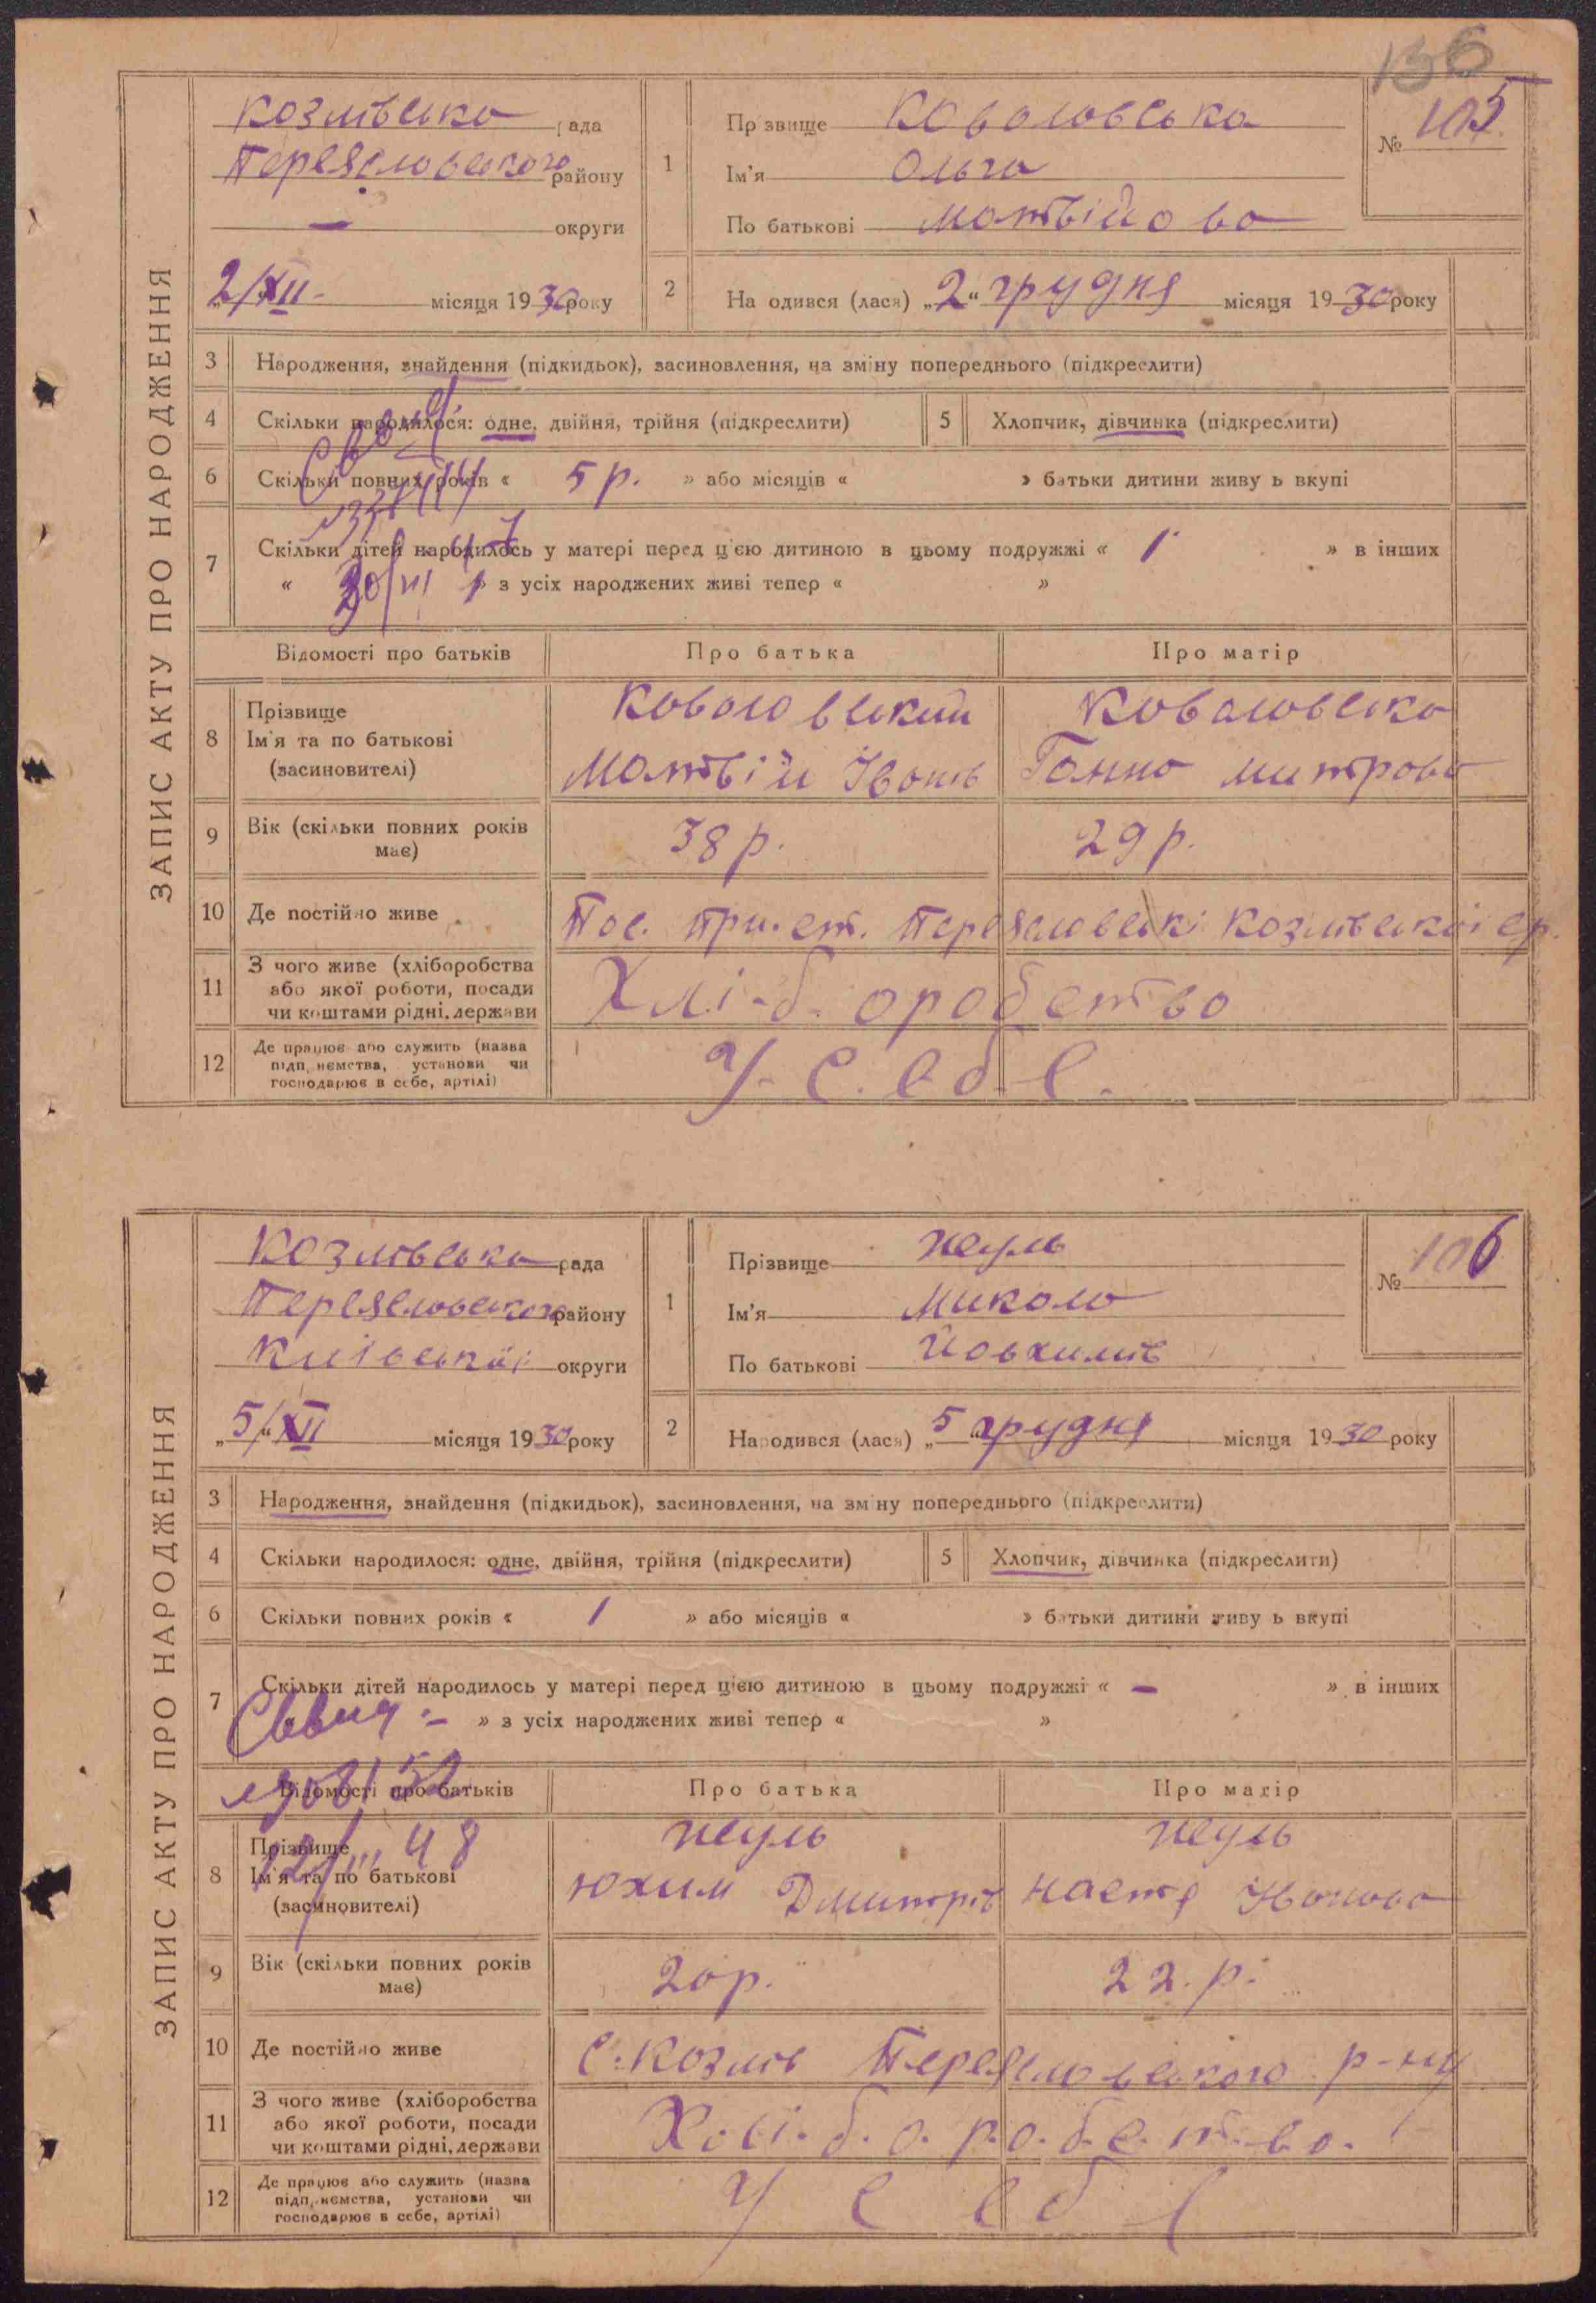 136
ЗАПИС АКТУ ПРО НАРОДЖЕННЯ
Козлівська рада
Переяславського району
— округи
2/XII- місяця 1930 року
1
Прізвище Коваловська
Ім'я Ольга
По батькові Матвійова
№ 105
2
Народився (лася) „2“ грудня місяця 1930 року
3 Народження, знайдення (підкидьок), засиновлення, на зміну попереднього (підкреслити)
4 Скільки народилося: одне, двійня, трійня (підкреслити)
5 Хлопчик, дівчинка (підкреслити)
6 Скільки повних років « 5 р. » або місяців « » батьки дитини живуть вкупі
7 Скільки дітей народилось у матері перед цією дитиною в цьому подружжі « 1 » в інших
« » з усіх народжених живі тепер « »
Відомості про батьків
Про батька
Про матір
8 Прізвище
Ім'я та по батькові
(засиновителі)
Коваловський
Матвій Іванів
Коваловська
Ганна Митрова
9 Вік (скільки повних років
має)
38 р.
29 р.
10 Де постійно живе
Пос. при. ст. Переяславські Козлівської ср.
11 З чого живе (хліборобства
або якої роботи, посади
чи коштами рідні, держави
Хлі-б. оробство
12 Де працює або служить (назва
підприємства, установи чи
господарює в себе, артілі)
У. с. еб е.
ЗАПИС АКТУ ПРО НАРОДЖЕННЯ
Козлівська рада
Переяславського району
Київської округи
„5/“XII місяця 1930 року
1
Прізвище
Ім'я Микола
По батькові Йовхимів
№ 106
2
Народився (лася) „5“ грудня місяця 1930 року
3 Народження, знайдення (підкидьок), засиновлення, на зміну попереднього (підкреслити)
4 Скільки народилося: одне, двійня, трійня (підкреслити)
5 Хлопчик, дівчинка (підкреслити)
6 Скільки повних років « 1 » або місяців « » батьки дитини живуть вкупі
7 Скільки дітей народилось у матері перед цією дитиною в цьому подружжі « — » в інших
» з усіх народжених живі тепер « »
Відомості про батьків
Про батька
Про матір
8 Прізвище
Ім'я та по батькові
(засиновителі)
Юхим Дмитрів
Настя Іванова
9 Вік (скільки повних років
має)
20 р.
22. р.
10 Де постійно живе
с. Козлів Переяславського р-ну
11 З чого живе (хліборобства
або якої роботи, посади
чи коштами рідні, держави
Хлі. б. о. р. о. б. с. т. в о.
12 Де працює або служить (назва
підприємства, установи чи
господарює в себе, артілі)
У с е б е